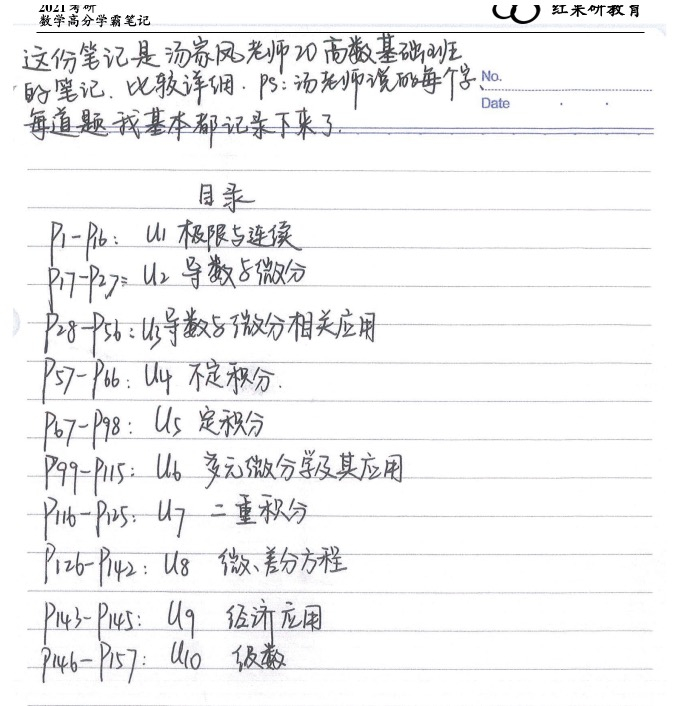 2021考研
数学高分学霸笔记
红果研教育
这份笔记是汤家凤老师20高数基础班
的笔记. 比较详细. PS:汤老师说的每个字、
每道题我基本都记录下来了.
No.
Date
目录
P1-P16: U1 极限与连续
P17-P27: U2 导数与微分
P28-P56: U3 导数与微分相关应用
P57-P66: U4 不定积分.
P67-P98: U5 定积分
P99-P115: U6 多元微分学及其应用
P116-P125: U7 二重积分
P126-P142: U8 微、差分方程
P143-P145: U9 经济应用
P146-P157: U10 级数